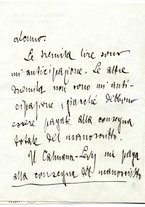 alcuno.
Le tremila lire sono
un'anticipazione. Le altre
tremila non sono un'anti-
cipazione, giacchè debbono
essere pagate alla consegna
totale del manoscritto.
Il Calmann-Lévy mi paga
alla consegna del manoscritto